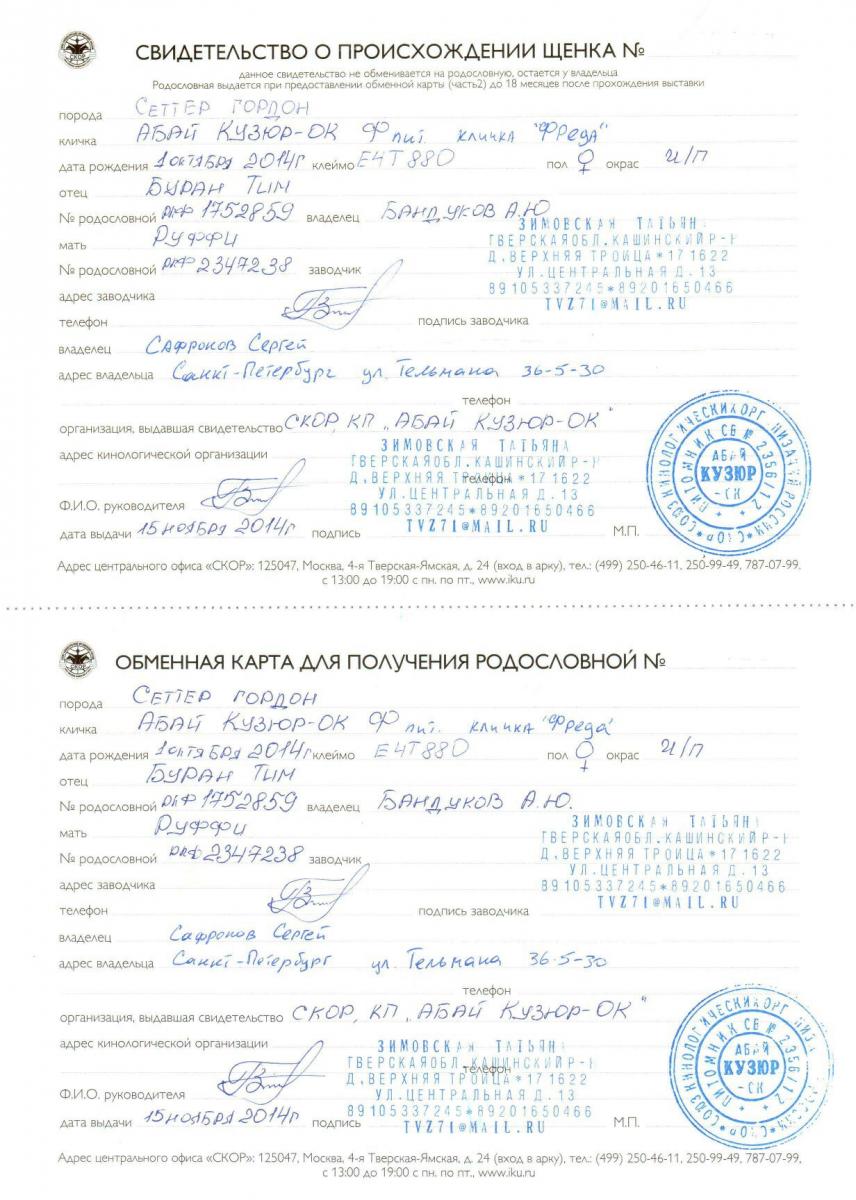 СВИДЕТЕЛЬСТВО О ПРОИСХОЖДЕНИИ ЩЕНКА №
данное свидетельство не обменивается на родословную, остается у владельца
Родословная выдается при предоставлении обменной карты (часть2) до 18 месяцев после прохождения выставки
порода СЕТТЕР ГОРДОН
кличка АБАЙ КУЗЮР-ОК Ф пит. кличка "Фреда"
дата рождения 1 октября 2014г клеймо E4T880 пол ♀ окрас Ч/П
отец БУРАН ТИМ
№ родословной РКФ 1752859 владелец БАНДУКОВ А.Ю
мать РУФФИ
№ родословной РКФ 2347238 заводчик
ЗИМОВСКАЯ ТАТЬЯН
ТВЕРСКАЯОБЛ.КАШИНСКИЙ Р-Н
Д.ВЕРХНЯЯ ТРОИЦА*171622
УЛ.ЦЕНТРАЛЬНАЯ Д.13
89105337245*89201650466
TVZ71@MAIL.RU
адрес заводчика
телефон подпись заводчика
владелец Сафронов Сергей
адрес владельца Санкт-Петербург ул. Тельмана 36-5-30
телефон
организация, выдавшая свидетельство СКОР, КП „АБАЙ КУЗЮР-ОК"
адрес кинологической организации
ЗИМОВСКАЯ ТАТЬЯНА
ТВЕРСКАЯОБЛ.КАШИНСКИЙР-Н
телефон
Д.ВЕРХНЯЯ ТРОИЦА*171622
УЛ.ЦЕНТРАЛЬНАЯ Д.13
89105337245*89201650466
TVZ71@MAIL.RU
Ф.И.О. руководителя
дата выдачи 15 ноября 2014г подпись М.П.
СОЮЗ КИНОЛОГИЧЕСКИХ ОРГАНИЗАЦИЙ РОССИИ * СКОР *
ПИТОМНИК СВ № 2356/12
АБАЙ
КУЗЮР
-ОК
Адрес центрального офиса «СКОР»: 125047, Москва, 4-я Тверская-Ямская, д. 24 (вход в арку), тел.: (499) 250-46-11, 250-99-49, 787-07-99,
с 13:00 до 19:00 с пн. по пт., www.iku.ru
ОБМЕННАЯ КАРТА ДЛЯ ПОЛУЧЕНИЯ РОДОСЛОВНОЙ №
порода СЕТТЕР ГОРДОН
кличка АБАЙ КУЗЮР-ОК Ф пит. кличка "Фреда"
дата рождения 1 октября 2014г клеймо E4T880 пол ♀ окрас Ч/П
отец БУРАН ТИМ
№ родословной РКФ 1752859 владелец БАНДУКОВ А.Ю.
мать РУФФИ
№ родословной РКФ 2347238 заводчик
ЗИМОВСКАЯ ТАТЬЯН
ТВЕРСКАЯОБЛ.КАШИНСКИЙ Р-Н
Д.ВЕРХНЯЯ ТРОИЦА*171622
УЛ.ЦЕНТРАЛЬНАЯ Д.13
89105337245*89201650466
TVZ71@MAIL.RU
адрес заводчика
телефон подпись заводчика
владелец Сафронов Сергей
адрес владельца Санкт-Петербург ул. Тельмана 36-5-30
телефон
организация, выдавшая свидетельство СКОР, КП „АБАЙ КУЗЮР-ОК"
адрес кинологической организации
ЗИМОВСКАЯ ТАТЬЯНА
ТВЕРСКАЯОБЛ.КАШИНСКИЙР-Н
телефон
Д.ВЕРХНЯЯ ТРОИЦА*171622
УЛ.ЦЕНТРАЛЬНАЯ Д.13
89105337245*89201650466
TVZ71@MAIL.RU
Ф.И.О. руководителя
дата выдачи 15 ноября 2014г подпись М.П.
СОЮЗ КИНОЛОГИЧЕСКИХ ОРГАНИЗАЦИЙ РОССИИ * СКОР *
ПИТОМНИК СВ № 2356/12
АБАЙ
КУЗЮР
-ОК
Адрес центрального офиса «СКОР»: 125047, Москва, 4-я Тверская-Ямская, д. 24 (вход в арку), тел.: (499) 250-46-11, 250-99-49, 787-07-99,
с 13:00 до 19:00 с пн. по пт., www.iku.ru